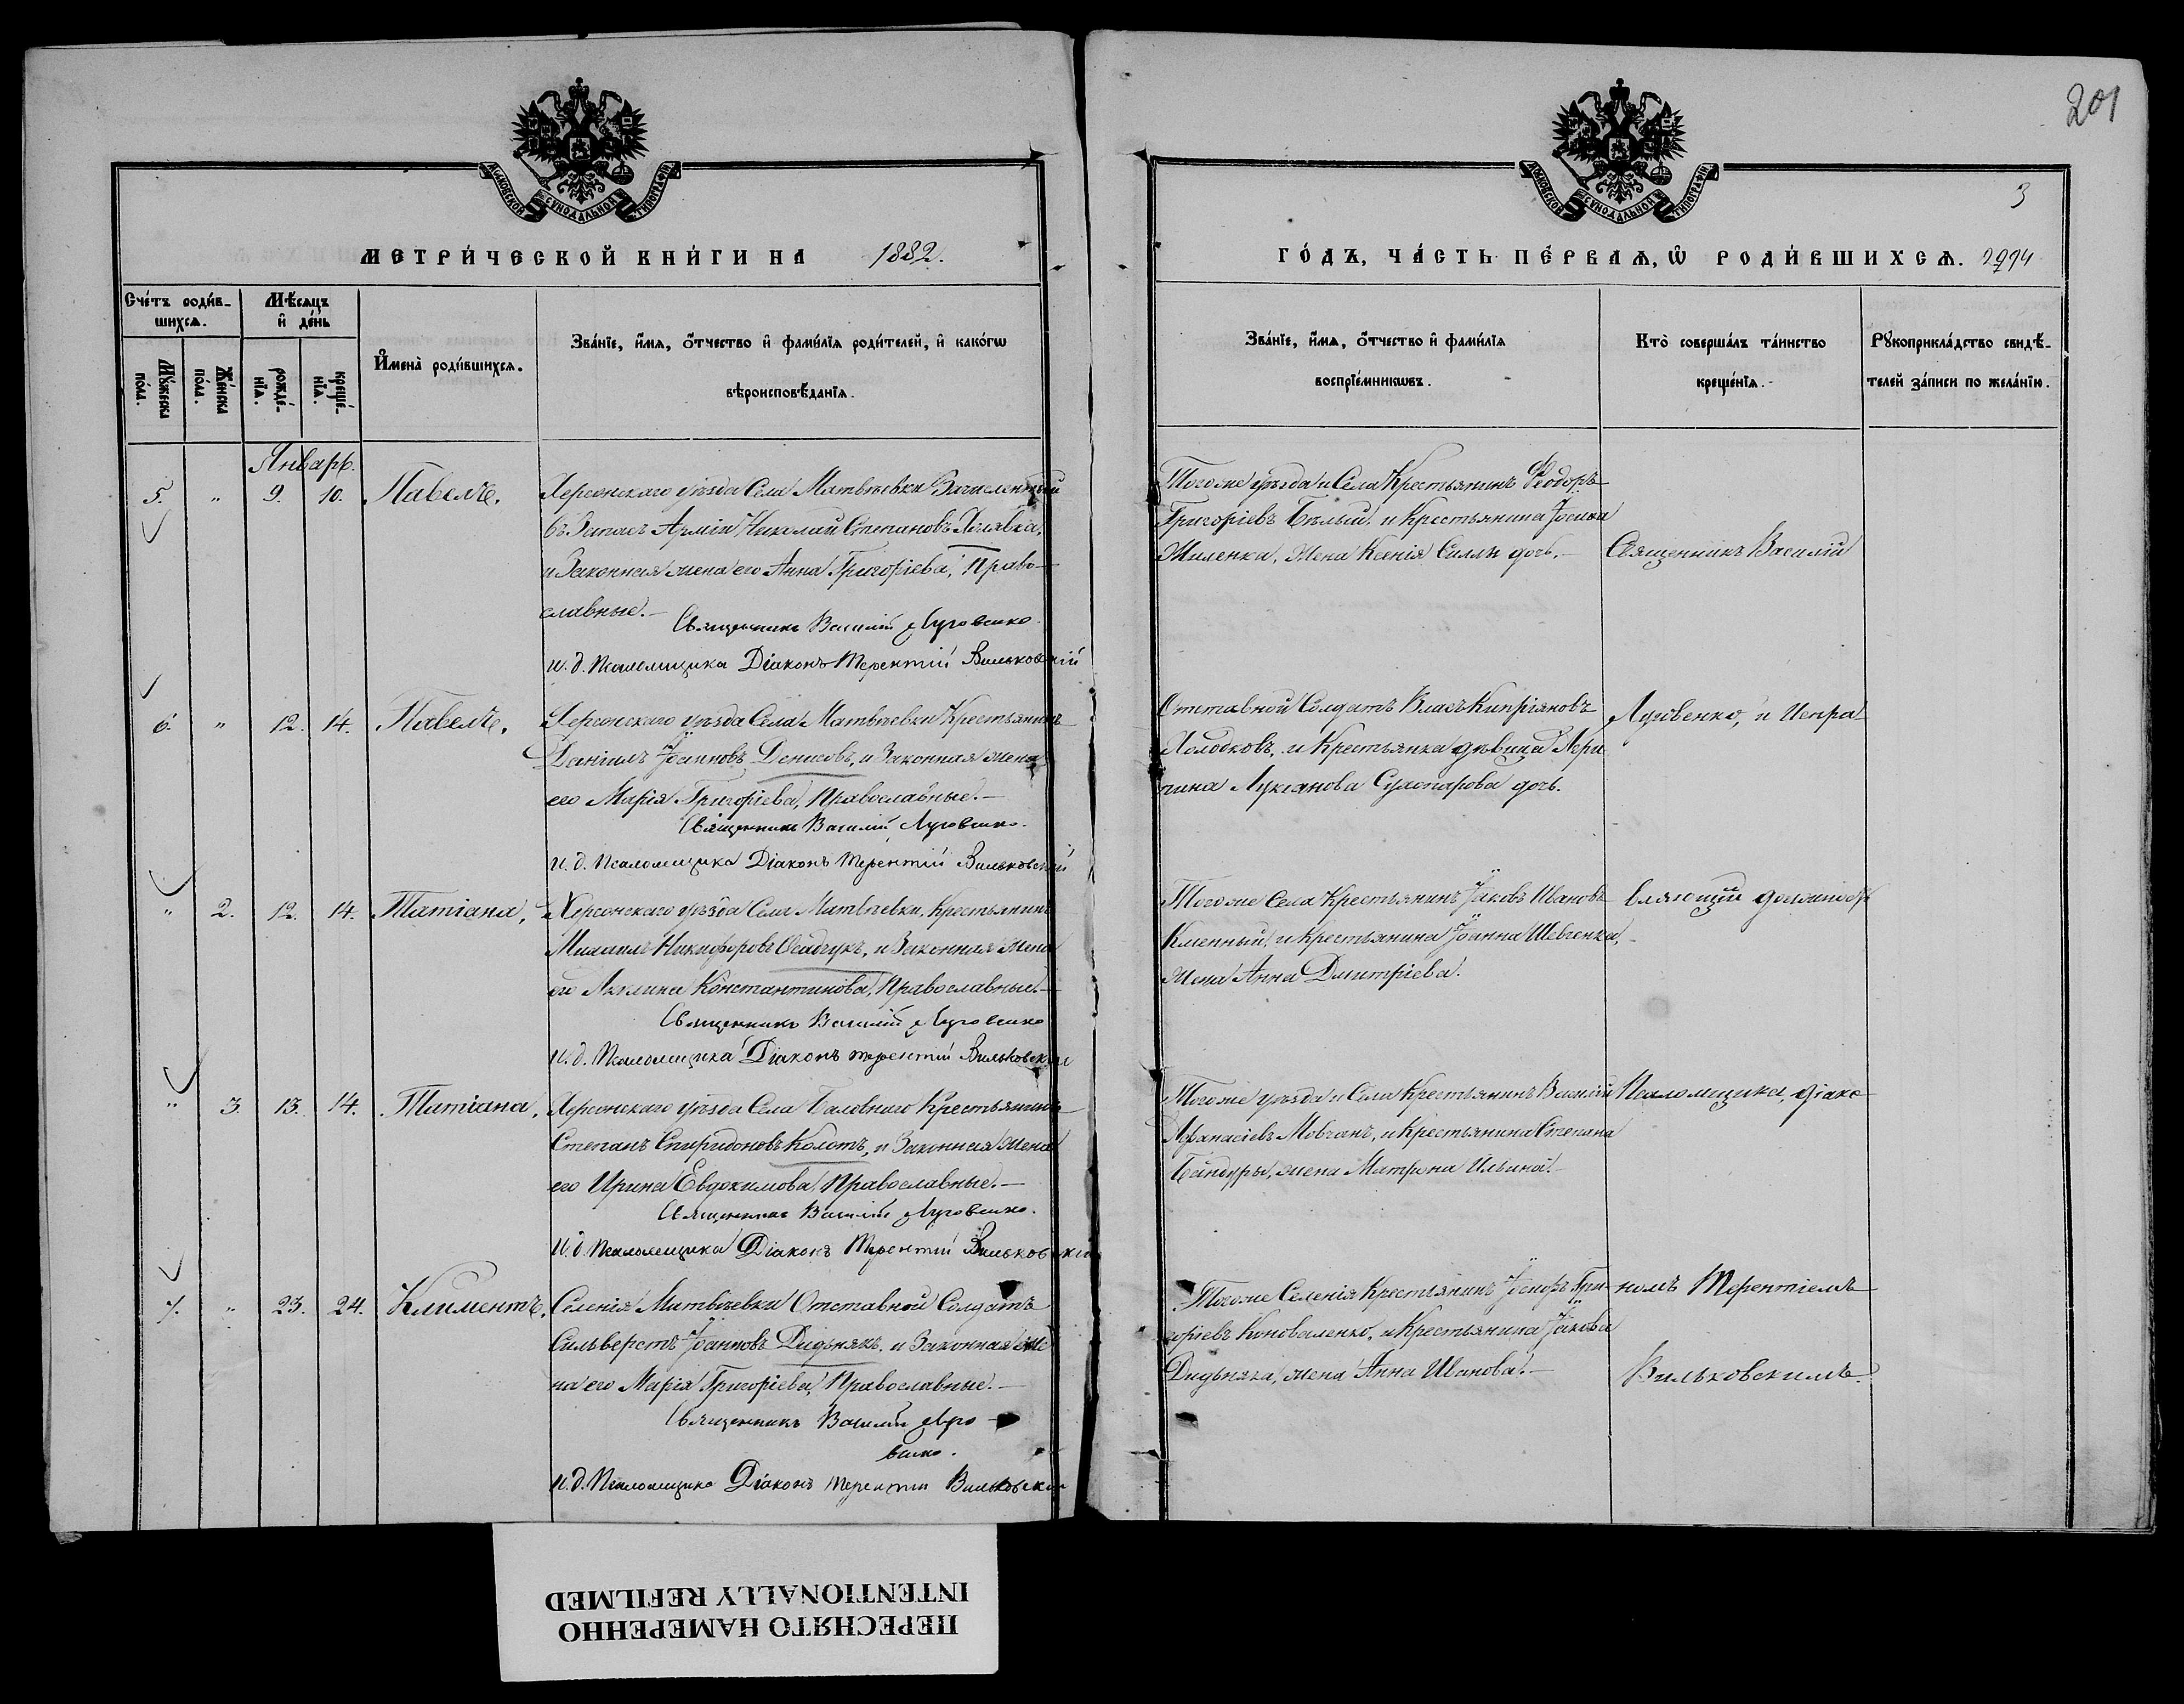 201
3
МОСКОВСКОЙ СѴНОДАЛЬНОЙ ТИПОГРАФІИ
МОСКОВСКОЙ СѴНОДАЛЬНОЙ ТИПОГРАФІИ
МЕТРИ́ЧЕСКОЙ КНИ́ГИ НА 1882.
ГО́ДЪ, ЧА́СТЬ ПЕ́РВАѦ, Ѡ РОДИ́ВШИХСѦ. 2994
Сче́тъ роди́в-
шихсѧ.
Мꙋ́жеска
по́ла.
Же́нска
по́ла.
Мѣ́сѧцъ
и҆ де́нь
рожде́-
нїѧ.
креще́-
нїѧ.
И҆мена̀ роди́вшихсѧ.
Зва́нїе, и҆́мѧ, ѻ҆́тчество и҆ фами́лїѧ роди́телей, и҆ како́гѡ
вѣроисповѣ́данїѧ.
Зва́нїе, и҆́мѧ, ѻ҆́тчество и҆ фами́лїѧ
воспрїе́мникѡвъ.
Кто̀ соверша́лъ та́инство
креще́нїѧ.
Рꙋкоприкла́дство свидѣ́-
телей за́писи по жела́нїю.
Январь.
5. " 9. 10. Павелъ,
Херсонскаго уѣзда Села Матвѣевки Зачисленный
въ Запасъ Арміи Николай Степановъ
и Законная жена его Анна Григоріева, Право-
славные.-
Священникъ Василій Луговенко.
и. д. Псаломщика Діаконъ Терентій Вильковскій
Тогоже уѣзда и Села Крестьянинъ Ѳеодоръ
Григоріевъ Бѣлый, и Крестьянина Іосифа
Жиленка, Жена Ксенія Силы дочь,-
Священникъ Василій
6. " 12. 14. Павелъ,
Херсонскаго уѣзда Села Матвѣевки Крестьянинъ
Даніилъ Іоанновъ Денисовъ, и Законная жена
его Марія Григоріева, Православные.-
Священникъ Василій Луговенко.
и. д. Псаломщика Діаконъ Терентій Вильковскій
Отставной Солдатъ Власъ Кипріяновъ
Холодковъ, и Крестьянка дѣвица
Лукіанова дочь.
Луговенко, и Испра
" 2. 12. 14. Татіана,
Херсонскаго уѣзда Села Матвѣевки, Крестьянинъ
Михаилъ Никифоровъ Осадчукъ, и Законная Жена
его Акилина Константинова, Православные.-
Священникъ Василій Луговенко
и. д. Псаломщика Діаконъ Терентій Вильковскій
Тогоже Села Крестьянинъ Іаковъ Ивановъ
и Крестьянина Іоанна Шевченка,
жена Анна Дмитріева.
вляющій должность
" 3. 13. 14. Татіана,
Херсонскаго уѣзда Села Баловнаго Крестьянинъ
Степанъ Спиридоновъ Колотъ, и Законная жена
его Ирина Евдокимова, Православные.-
Священникъ Василій Луговенко.
И. д. Псаломщика Діаконъ Терентій Вильковскій
Тогоже уѣзда и Села Крестьянинъ Василій
Афанасіевъ Мовчанъ, и Крестьянина Степана
Бандуры, жена Матрона Ильина.-
Псаломщика, Діако
7. " 23. 24. Климентъ,
Селенія Матвѣевки Отставной Солдатъ
Сильверстъ Іоанновъ Дидьнякъ, и Законная же
на его Марія Григоріева, Православные.-
Священникъ Василій Луго-
венко.
и. д. Псаломщика Діаконъ Терентій Вильковскій
Тогоже Селенія Крестьянинъ Іосифъ Гри-
горіевъ Коноваленко, и Крестьянина Іакова
Дидьняка, жена Анна Иванова.-
номъ Терентіемъ
Вильковскимъ.
ПЕРЕСНЯТО НАМЕРЕННО
INTENTIONALLY REFILMED